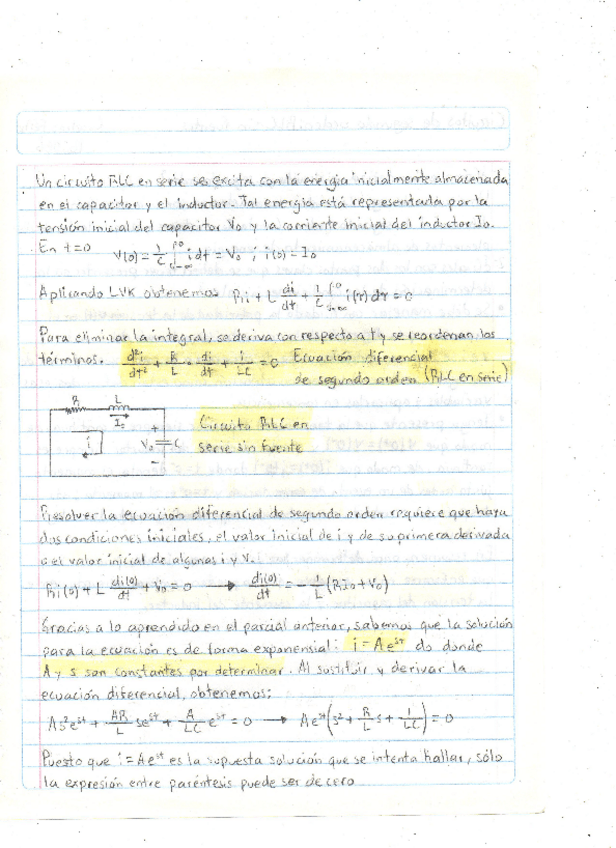 Un circuito RLC en serie se excita con la energía inicialmente almacenada
en el capacitor y el inductor. Tal energía está representada por la
tensión inicial del capacitor V₀ y la corriente inicial del inductor I₀.
En t=0 V(0) = 1/C ∫₋∞⁰ i dt = V₀ ; i(0) = I₀
Aplicando LVK obtenemos Ri + L di/dt + 1/C ∫₋∞⁰ i(τ) dτ = 0
Para eliminar la integral, se deriva con respecto a t y se reordenan los
términos. d²i/dt² + R/L · di/dt + i/LC = 0 Ecuación diferencial
de segundo orden (RLC en serie)
R L
I₀
i + V₀ − C
Circuito RLC en
serie sin fuente
Resolver la ecuación diferencial de segundo orden requiere que haya
dos condiciones iniciales, el valor inicial de i y de su primera derivada
o el valor inicial de algunos i y v.
Ri(0) + L di(0)/dt + V₀ = 0 → di(0)/dt = −1/L (RI₀ + V₀)
Gracias a lo aprendido en el parcial anterior, sabemos que la solución
para la ecuación es de forma exponensial: i = Ae^st do donde
A y s son constantes por determinar. Al sustituir y derivar la
ecuación diferencial, obtenemos:
As²e^st + AR/L se^st + A/LC e^st = 0 → Ae^st (s² + R/L s + 1/LC) = 0
Puesto que i = Ae^st es la supuesta solución que se intenta hallar, sólo
la expresión entre paréntesis puede ser de cero